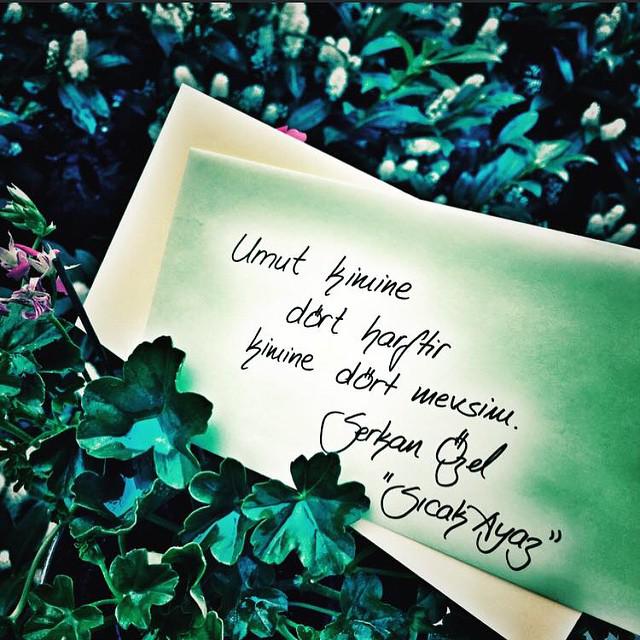 Umut kimine
dört harftir
kimine dört mevsim.
Serkan Özel
"Sıcak Ayaz"